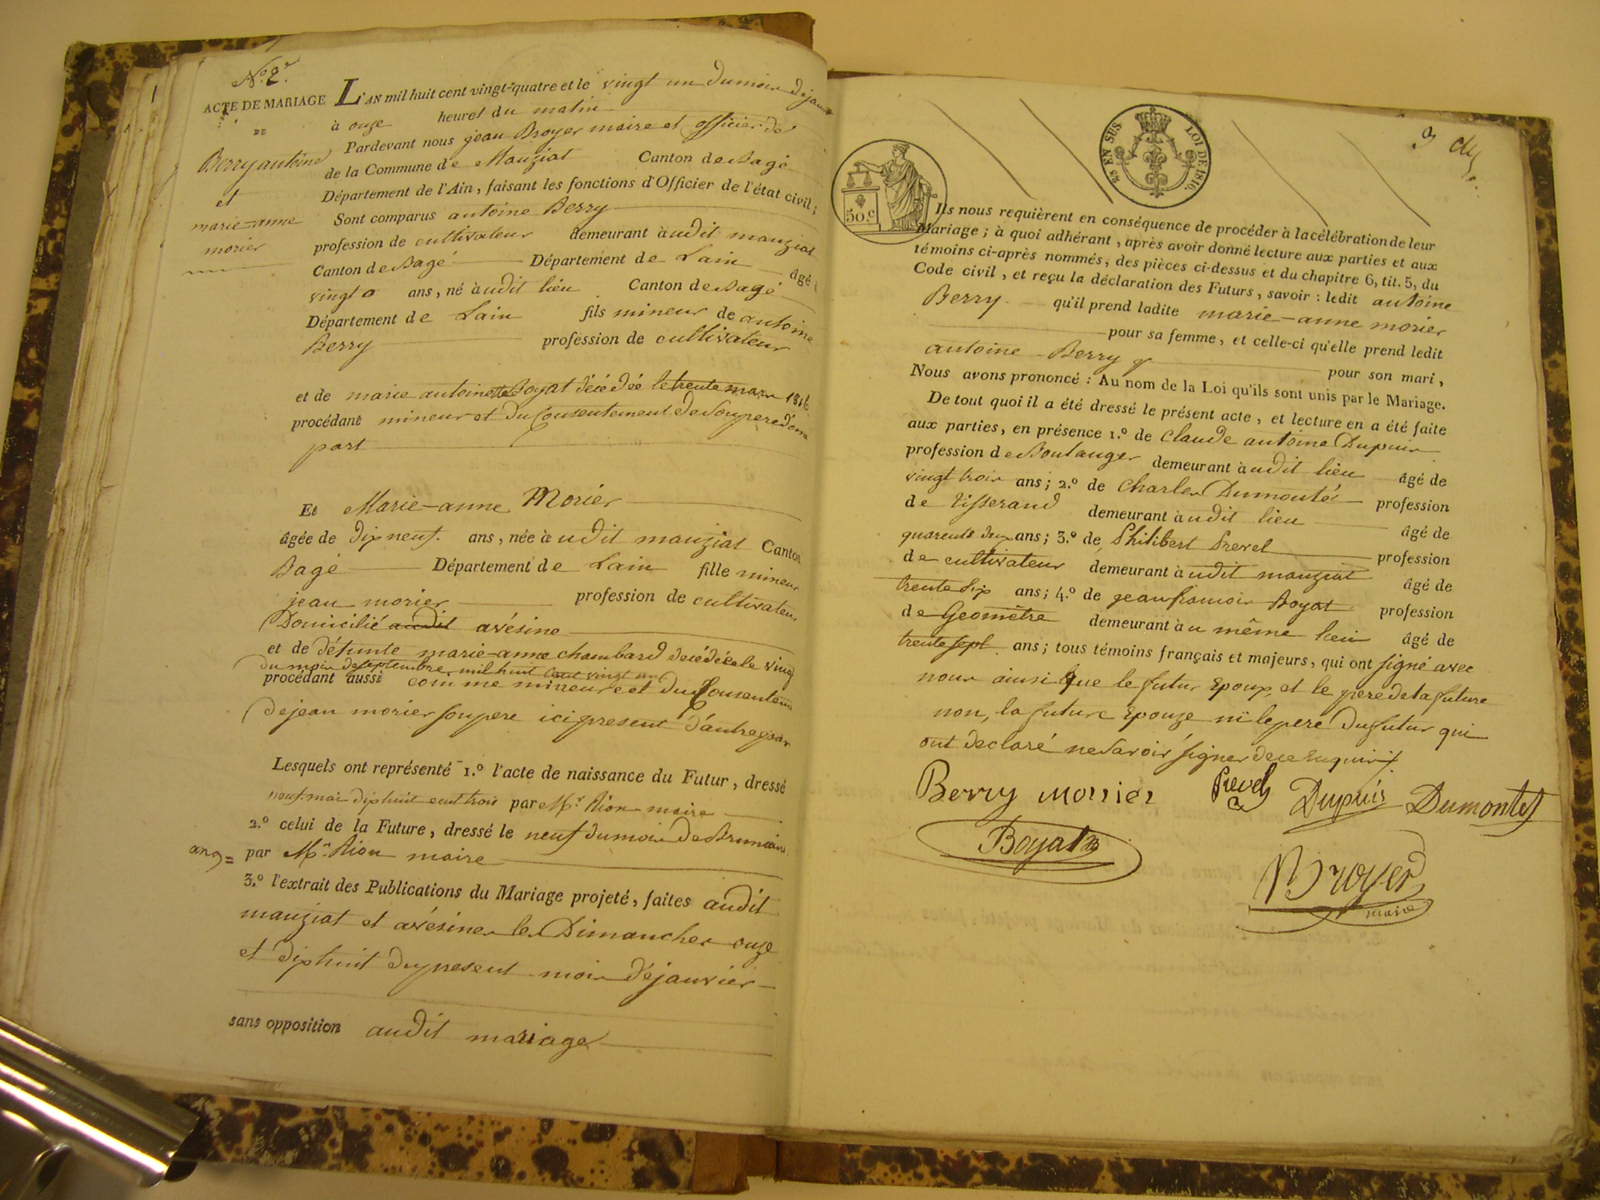 N.º 2.
ACTE DE MARIAGE
DE
Berry antoine
et
marie-anne
morier
L'AN mil huit cent vingt-quatre et le vingt un du mois de janv
à onze heures du matin
Pardevant nous jean Broyer maire et officier de
de la Commune de Manziat Canton de Bagé
Département de l'Ain, faisant les fonctions d'Officier de l'état civil;
Sont comparus antoine Berry
profession de cultivateur demeurant audit manziat
Canton de Bagé Département de Lain âgé
vingt ans, né audit lieu Canton de Bagé
Département de Lain fils mineur de antoine
Berry profession de cultivateur
et de marie antoinette Boyat décédée le trente mars 1816
procédant mineur et du Consentement de Son pere d'une
part
Et Marie-anne Morier
âgée de dix neuf ans, née audit manziat Canton
Bagé Département de Lain fille mineur
jean morier profession de cultivateur
Domicilié audit avésine
et de défunte marie-anne chambard décédée le ving
du mois de septembre mil huit cent vingt un
procédant aussi comme mineure et du Consentem
de jean morier son pere ici present d'autre part
Lesquels ont représenté 1.º l'acte de naissance du Futur, dressé
neuf mai dix huit cent trois par Mr. Rion maire
2.º celui de la Future, dressé le neuf du mois de Brumaire
an 9 = par Mr. Rion maire
3.º l'extrait des Publications du Mariage projeté, faites audit
manziat et avésines les Dimanches onze
et dix huit du present mois de janvier
sans opposition audit mariage
3
EN SUS
LOI DE 1816.
50 c
Ils nous requièrent en conséquence de procéder à la célébration de leur
Mariage; à quoi adhérant, après avoir donné lecture aux parties et aux
témoins ci-après nommés, des pièces ci-dessus et du chapitre 6, tit. 5, du
Code civil, et reçu la déclaration des Futurs, savoir: ledit antoine
Berry qu'il prend ladite marie-anne morier
pour sa femme, et celle-ci qu'elle prend ledit
antoine Berry pour son mari,
Nous avons prononcé: Au nom de la Loi qu'ils sont unis par le Mariage.
De tout quoi il a été dressé le présent acte, et lecture en a été faite
aux parties, en présence 1.º de Claude antoine Dupuis
profession de Boulanger demeurant audit lieu âgé de
vingt trois ans; 2.º de Charles Dumontés profession
de tisserand demeurant audit lieu âgé de
quarente deux ans; 3.º de Philibert Prevel profession
de cultivateur demeurant audit manziat âgé de
trente six ans; 4.º de jean francois Boyat profession
de Géomètre demeurant au même lieu âgé de
trente sept ans; tous témoins français et majeurs, qui ont signé avec
nous ainsi que le futur Epoux, et le pere de la future
non, la future Epouze ni le pere du futur qui
ont declaré ne savoir signer de ce enquis
Berry morier Prevel Dupuis Dumontet
Boyat
Broyer
maire